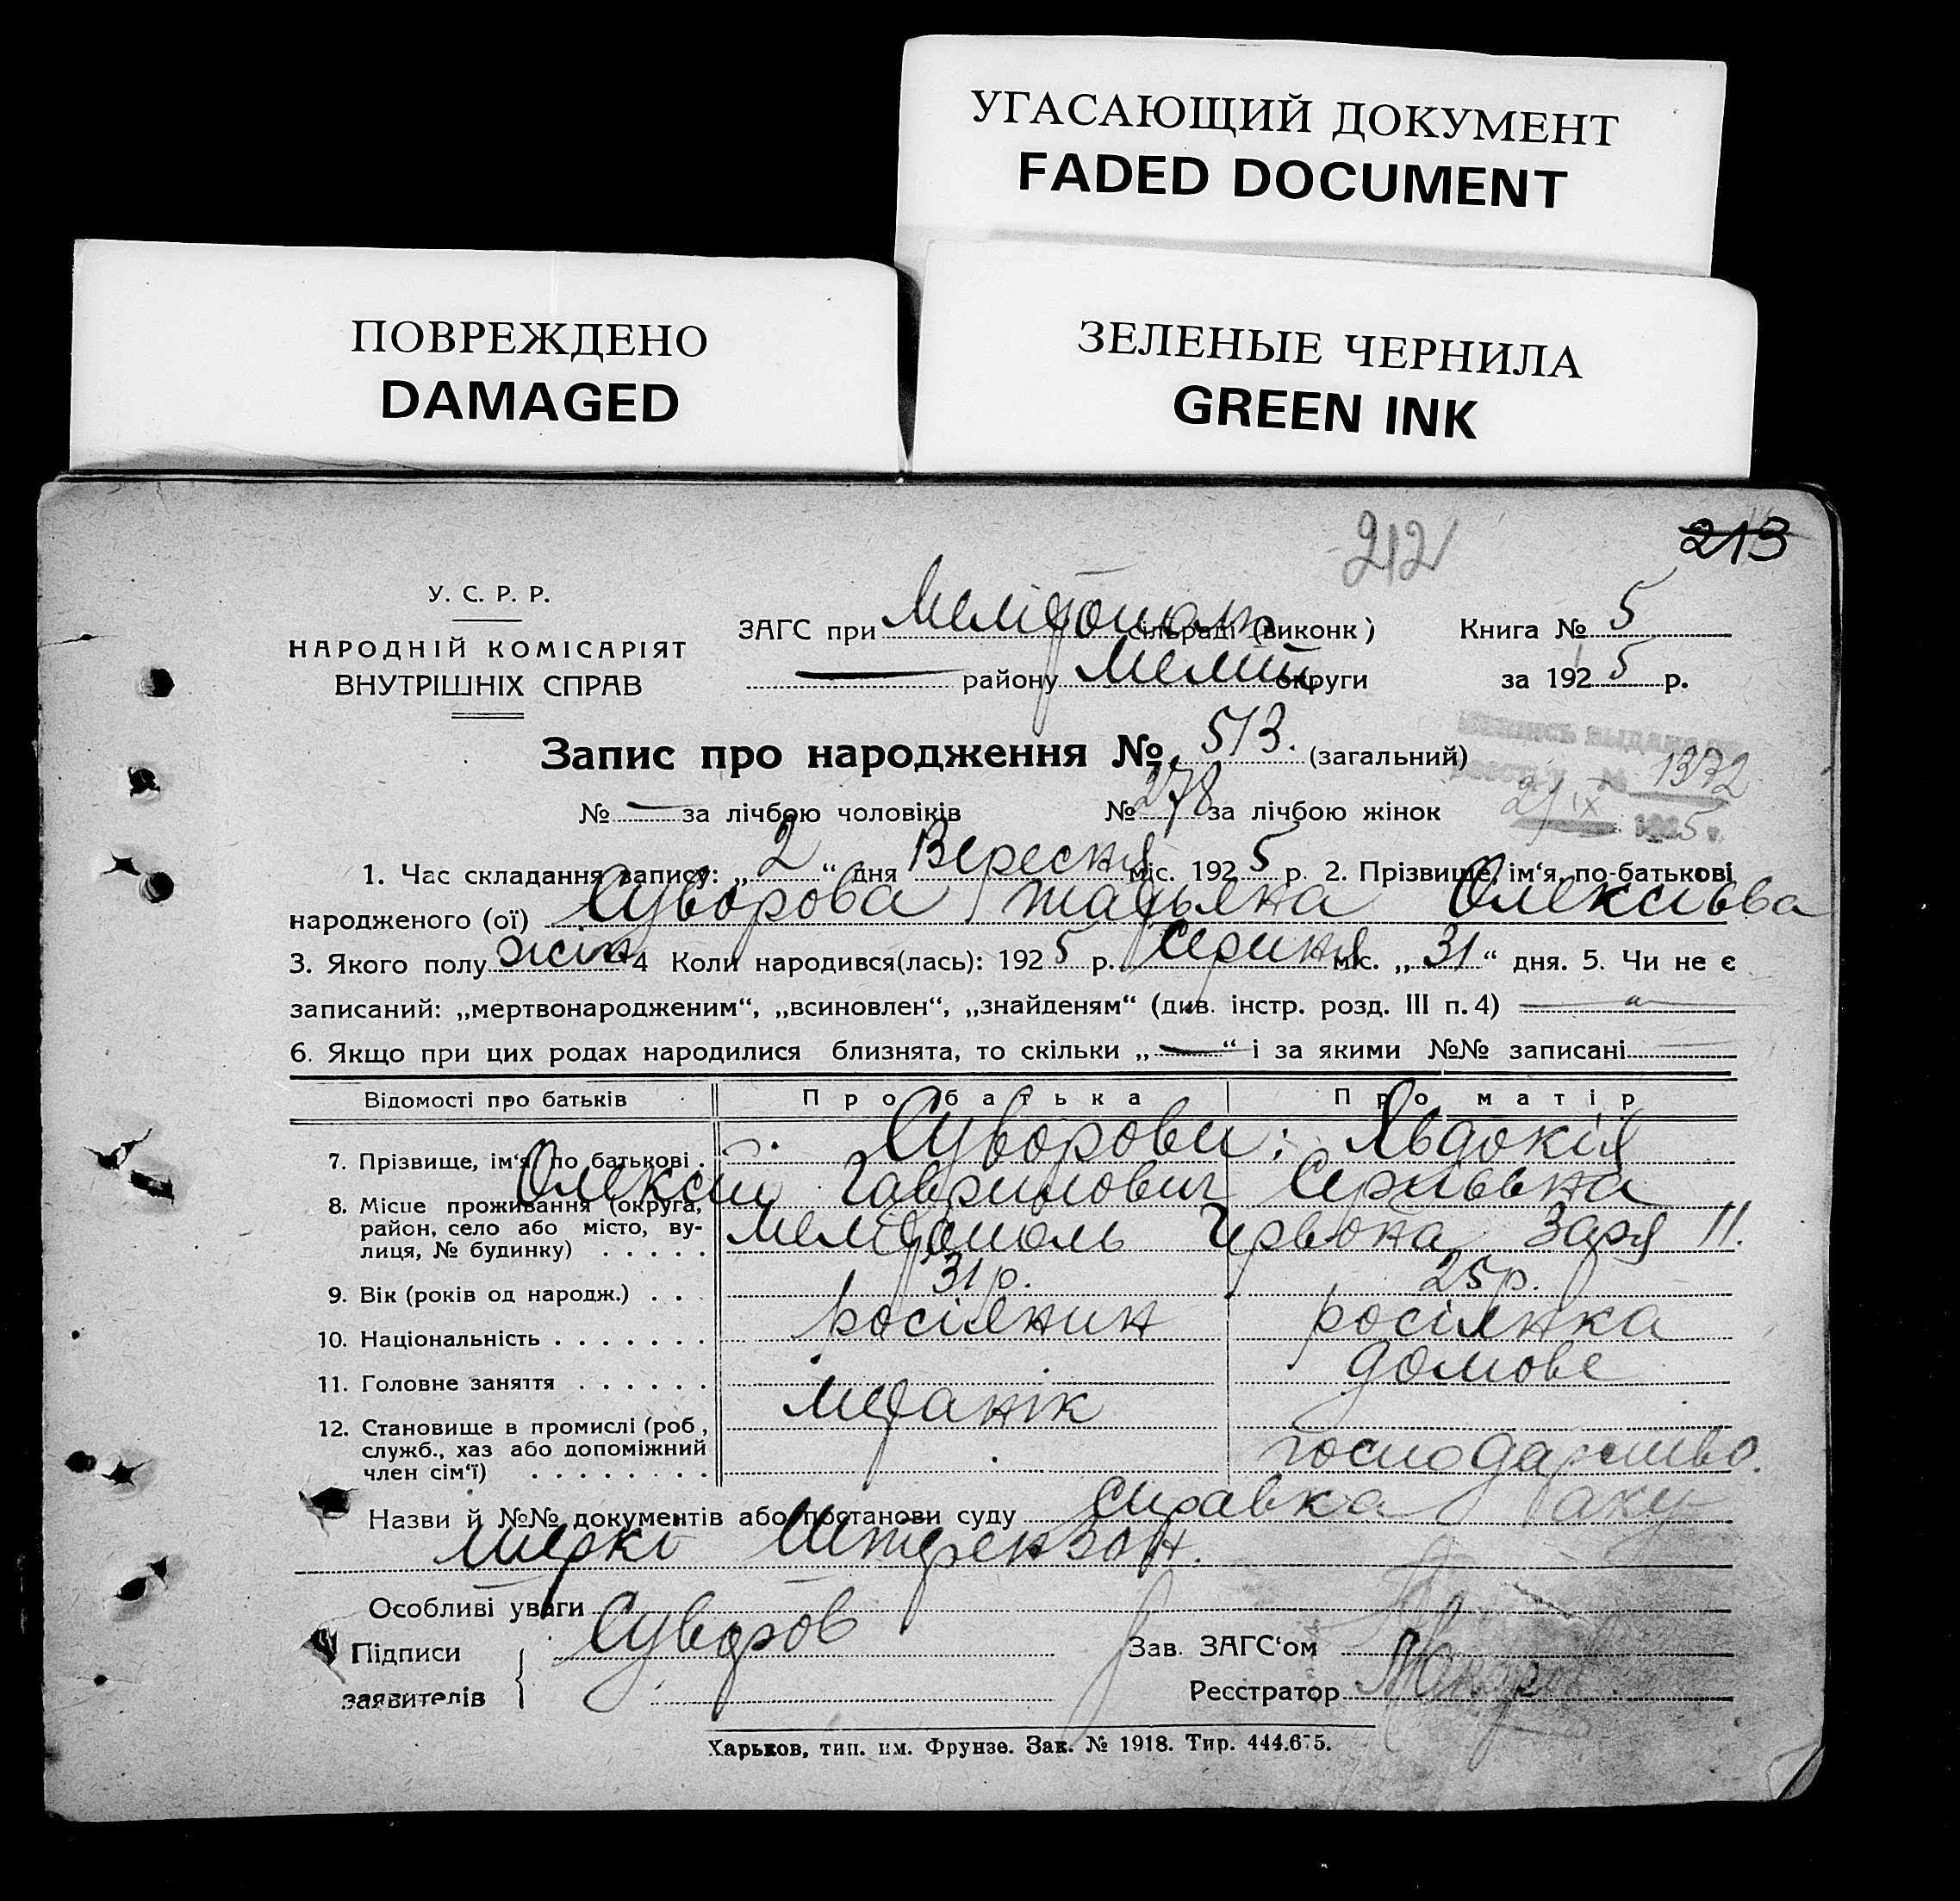 УГАСАЮЩИЙ ДОКУМЕНТ
FADED DOCUMENT
ПОВРЕЖДЕНО
DAMAGED
ЗЕЛЕНЫЕ ЧЕРНИЛА
GREEN INK
212
213
У. С. Р. Р.
НАРОДНІЙ КОМІСАРІЯТ
ВНУТРІШНІХ СПРАВ
ЗАГС при Мелітопол. сільраді (виконк)
Книга № 5
району Меліт округи
за 1925 р.
Запис про народження № 513. (загальний)
1372
№ — за лічбою чоловіків № 278 за лічбою жінок
21 IX 1925 г.
1. Час складання запису: „2“ дня Вересня міс. 1925 р. 2. Прізвище, ім‘я, по-батькові
народженого (ої) Суворова Татьяна Олексієвва
3. Якого полу жін 4 Коли народився(лась): 1925 р. Серпня міс. „31“ дня. 5. Чи не є
записаний: „мертвонародженим“, „всиновлен“, „знайденям“ (див. інстр. розд. III п. 4) —
6. Якщо при цих родах народилися близнята, то скільки „—“ і за якими №№ записані —
Відомості про батьків Про батька Про матір
7. Прізвище, ім‘я, по батькові . Суворови; Явдокія
Олексій Гаврилович Сергіевна
8. Місце проживання (округа,
район, село або місто, ву-
лиця, № будинку) . . . . . Мелітополь Червона Заря 11.
9. Вік (років од народж.) . . . 31 р. 25 р.
10. Національність . . . . . . . росіянин росіянка
11. Головне заняття . . . . . . Механік домове
12. Становище в промислі (роб,
служб., хаз або допоміжний
член сім‘ї) . . . . . . . . господарство.
Назви й №№ документів або постанови суду справка аку
шерки Штефензон.
Особливі уваги
Підписи
заявителів
Суворов
Зав. ЗАГС‘ом
Реєстратор
Харьков, тип. им. Фрунзе. Зак. № 1918. Тир. 444.675.